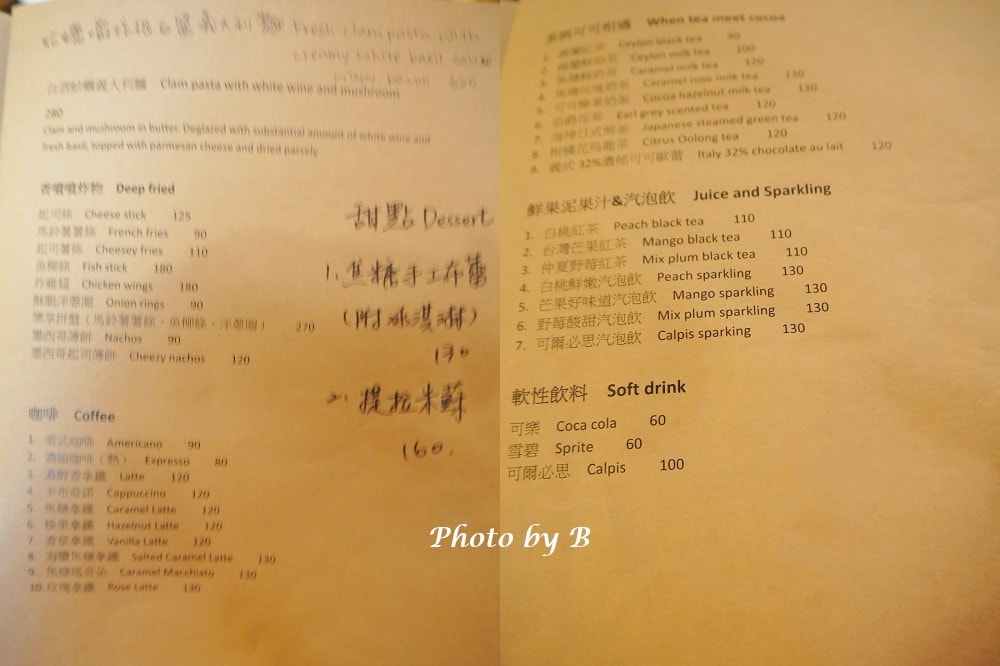 Fresh clam pasta with
creamy white basil sauce
crispy bacon 320
白酒蛤蠣義大利麵 Clam pasta with white wine and mushroom
280
Clam and mushroom in butter. Deglazed with substantial amount of white wine and
fresh basil, topped with parmesan cheese and dried parsely
香噴噴炸物 Deep fried
起司條 Cheese stick 125
馬鈴薯薯條 French fries 90
起司薯條 Cheesey fries 110
魚柳條 Fish stick 180
炸雞翅 Chicken wings 180
酥脆洋蔥圈 Onion rings 90
樂享拼盤（馬鈴薯薯條、魚柳條、洋蔥圈） 270
墨西哥薄餅 Nachos 90
墨西哥起司薄餅 Cheezy nachos 120
甜點 Dessert
1. 焦糖手工布蕾
(附冰淇淋)
130
2. 提拉米蘇
160.
咖啡 Coffee
1. 美式咖啡 Americano 90
2. 濃縮咖啡（熱） Expresso 80
3. 濃醇香拿鐵 Latte 120
4. 卡布奇諾 Cappuccino 120
5. 焦糖拿鐵 Caramel Latte 120
6. 榛果拿鐵 Hazelnut Latte 120
7. 香草拿鐵 Vanilla Latte 120
8. 海鹽焦糖拿鐵 Salted Caramel Latte 130
9. 焦糖瑪奇朵 Caramel Macchiato 130
10. 玫瑰拿鐵 Rose Latte 130
茶與可可相遇 When tea meet cocoa
1. 錫蘭紅茶 Ceylon black tea 90
2. 錫蘭鮮奶茶 Ceylon milk tea 100
3. 焦糖鮮奶茶 Caramel milk tea 120
4. 焦糖玫瑰奶茶 Caramel rose milk tea 130
5. 可可榛果奶茶 Cocoa hazelnut milk tea 130
6. 伯爵花茶 Earl grey scented tea 120
7. 海神日式煎茶 Japanese steamed green tea 120
8. 柑橘花烏龍茶 Citrus Oolong tea 120
9. 義式 32%濃郁可可歐蕾 Italy 32% chocolate au lait 120
鮮果泥果汁&汽泡飲 Juice and Sparkling
1. 白桃紅茶 Peach black tea 110
2. 台灣芒果紅茶 Mango black tea 110
3. 仲夏野莓紅茶 Mix plum black tea 110
4. 白桃鮮嫩汽泡飲 Peach sparkling 130
5. 芒果好味道汽泡飲 Mango sparkling 130
6. 野莓酸甜汽泡飲 Mix plum sparkling 130
7. 可爾必思汽泡飲 Calpis sparking 130
軟性飲料 Soft drink
可樂 Coca cola 60
雪碧 Sprite 60
可爾必思 Calpis 100
Photo by B